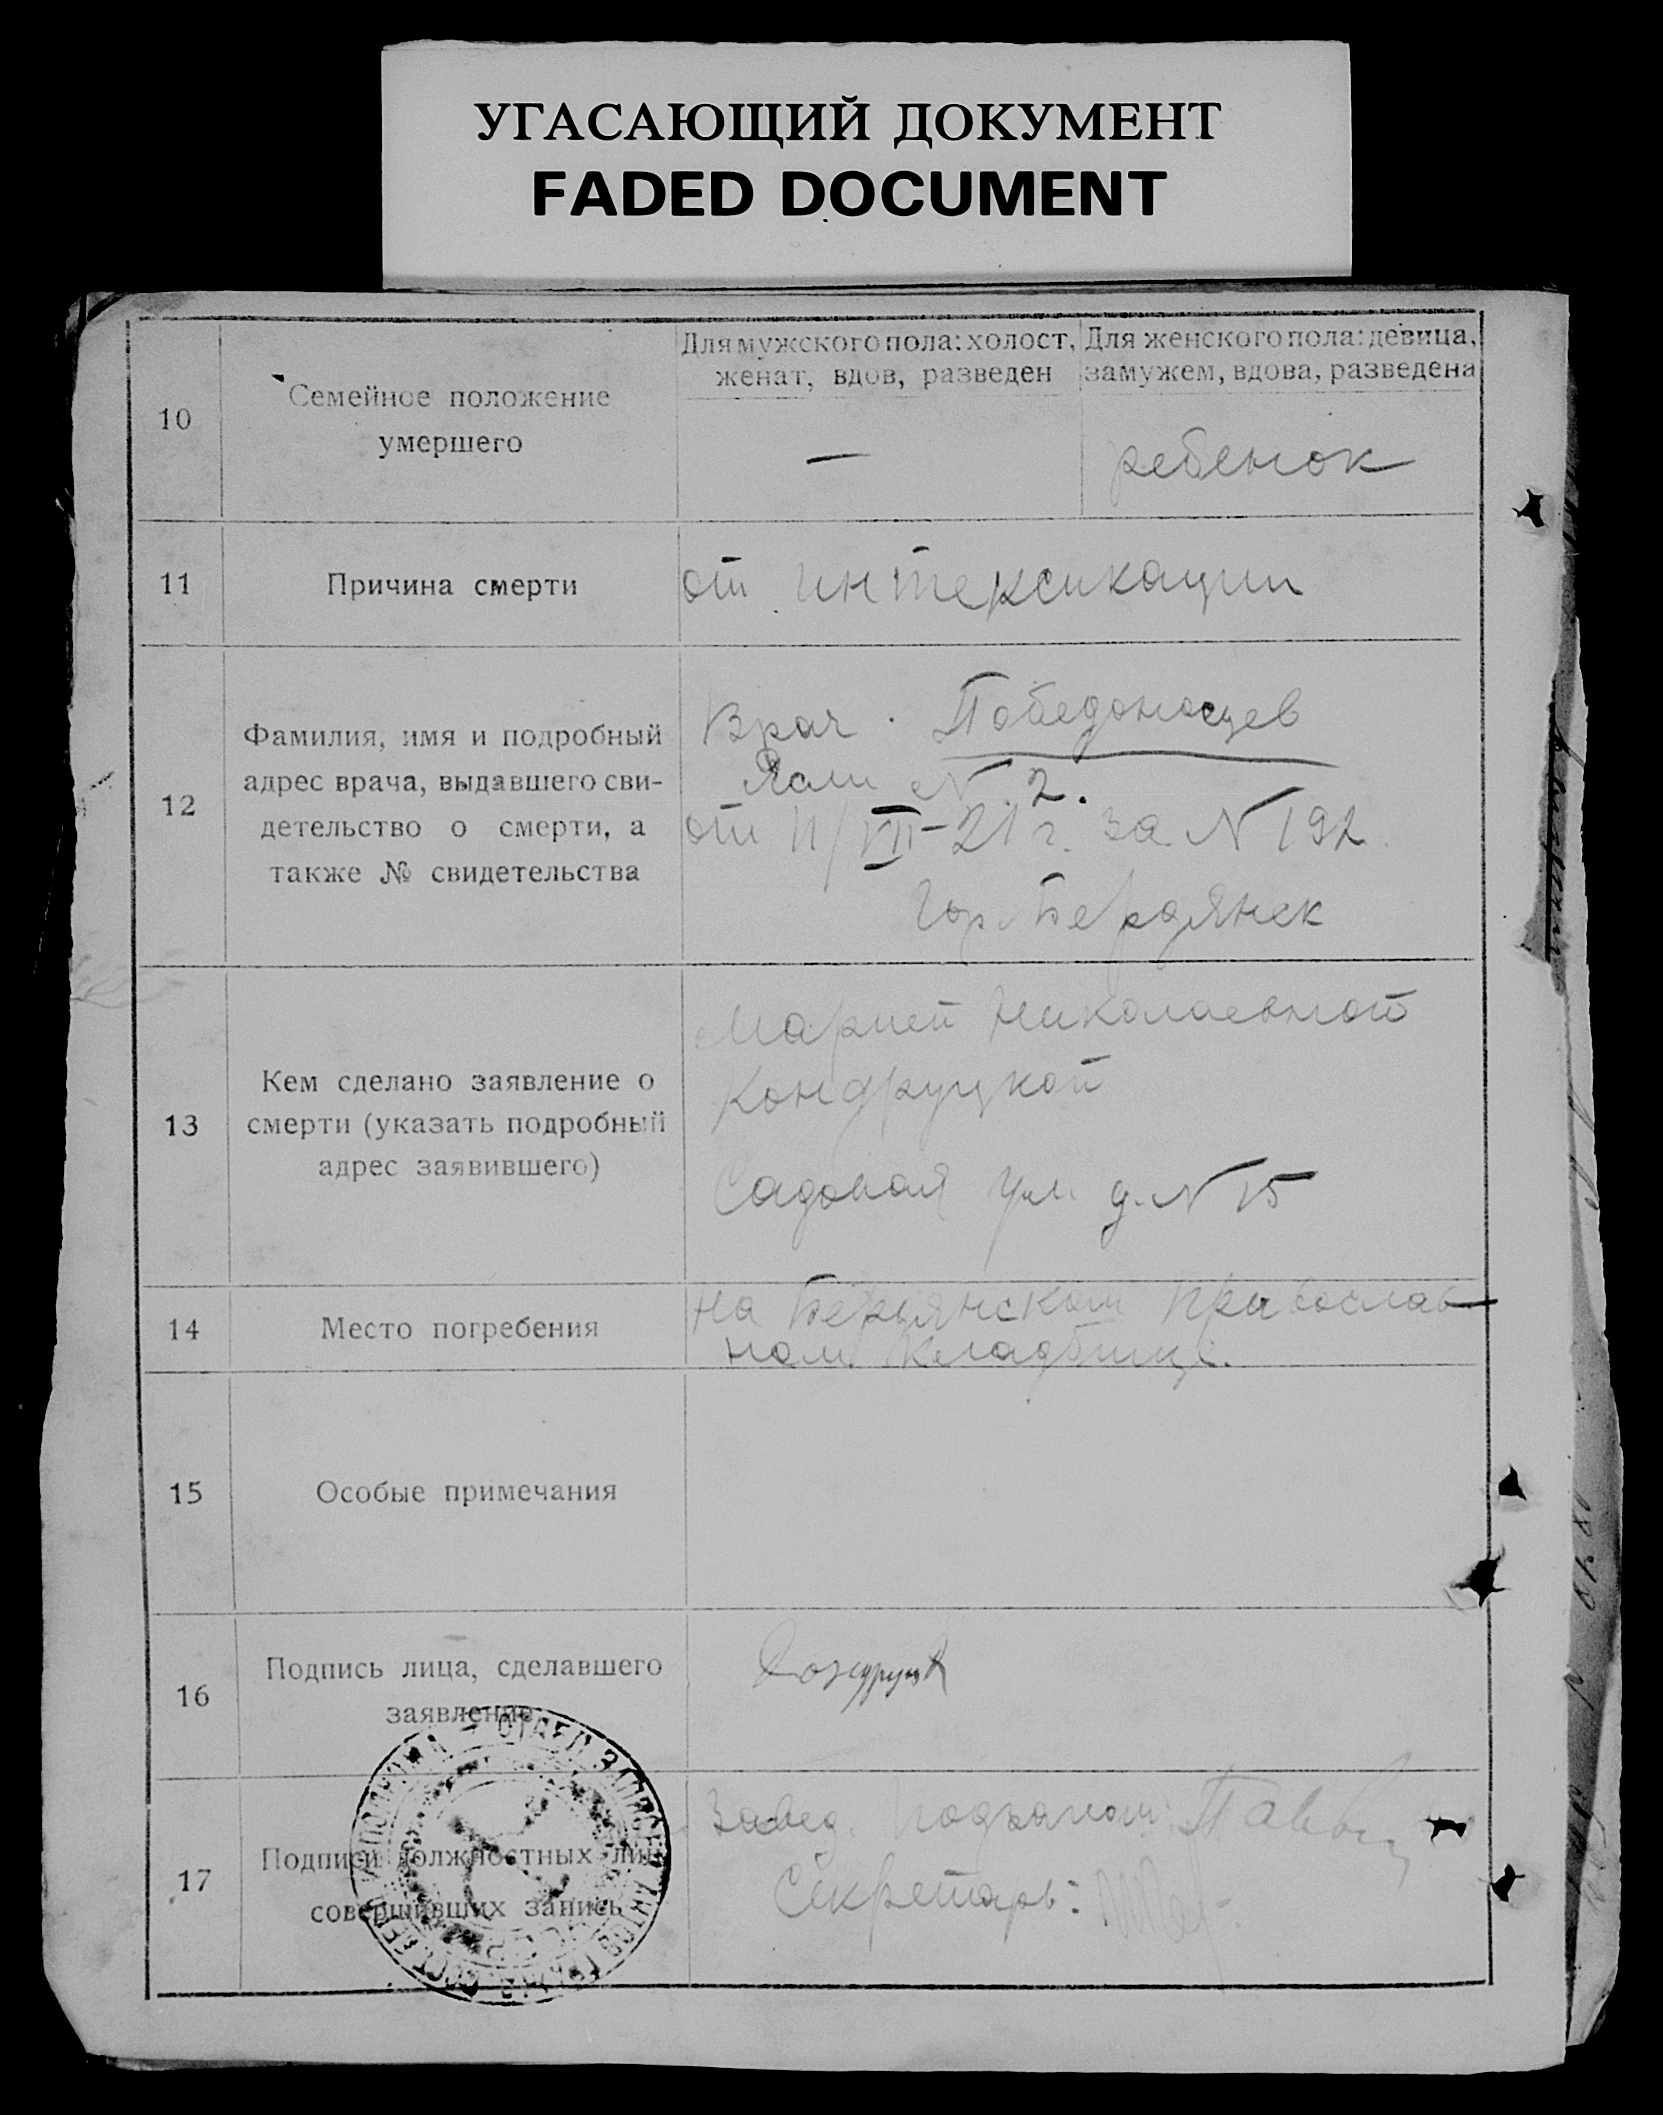 УГАСАЮЩИЙ ДОКУМЕНТ
FADED DOCUMENT
10
Семейное положение
умершего
Для мужского пола: холост,
женат, вдов, разведен
Для женского пола: девица,
замужем, вдова, разведена
—
ребенок
11
Причина смерти
от интексикации
12
Фамилия, имя и подробный
адрес врача, выдавшего сви-
детельство о смерти, а
также № свидетельства
Врач Победоносцев
Ясли № 2.
от 11/VII-21 г. за № 192
Гор. Бердянск
13
Кем сделано заявление о
смерти (указать подробный
адрес заявившего)
Марией Николаевной
Кондруцкой
Садовая ул. д. № 15
14
Место погребения
на Бердянском Православ-
ном Кладбище.
15
Особые примечания
16
Подпись лица, сделавшего
заявление
17
Подписи должностных лиц,
совершивших запись
Завед.
Секретарь:
ОТДЕЛ ЗАПИСЕЙ АКТОВ